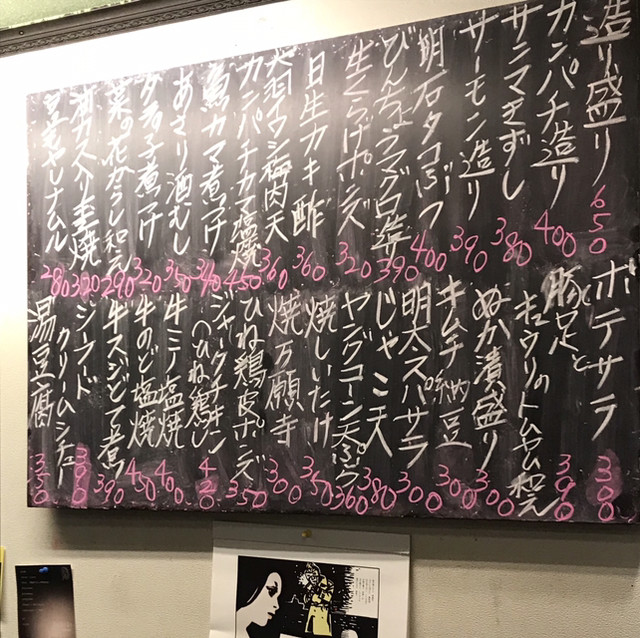 造り盛り 650
カンパチ造り 400
サンマきずし 380
サーモン造り 390
明石タコぶつ 400
びんちょうマグロ造 390
生くらげポンズ 320
日生カキ酢 360
大羽イワシ梅肉天 360
カンパチカマ塩焼 450
魚カマ煮つけ
あさり酒むし 350
タラ子煮つけ 320
菜の花からし和え 290
油カス入り玉焼
もやしナムル 280
ポテサラ 300
豚足と
キュウリのトムヤム和え 390
ぬか漬盛り 300
キムチ納豆 300
明太スパサラ 300
じゃこ天 380
ヤングコーン天ぷら 360
焼しいたけ 350
焼万願寺 300
ひね鶏皮ポンズ 350
ジャークチキン
(ひね鶏) 420
牛ミノ塩焼 400
牛のど塩焼 450
牛スジどて煮 390
シーフード
クリームシチュー 390
湯豆腐 350